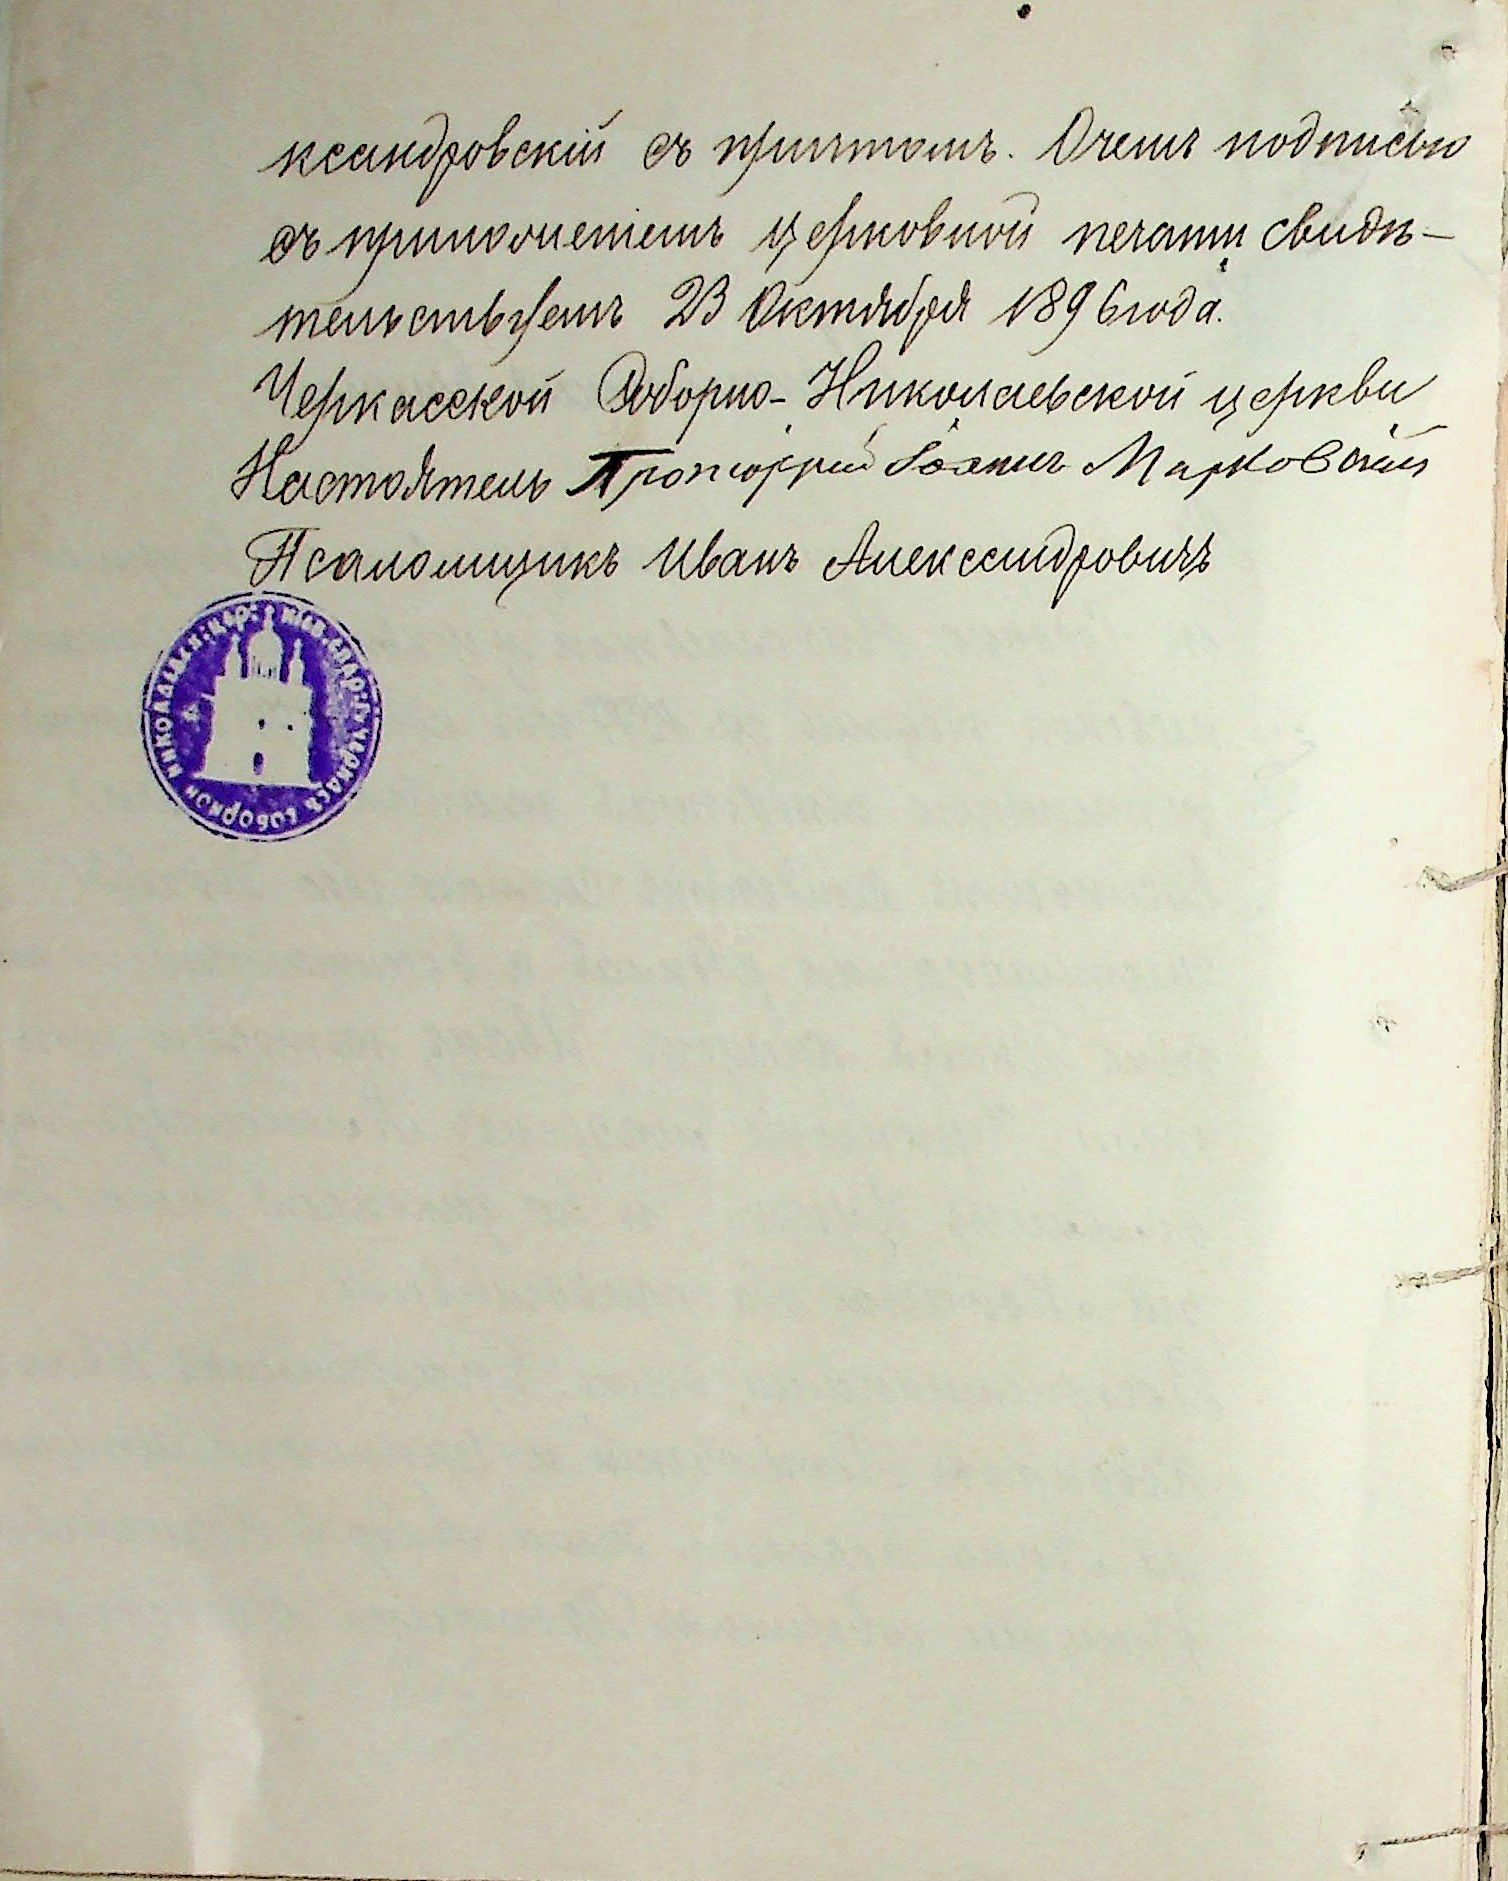 ксандровскій съ причтомъ. О чемъ подписью
съ приложеніемъ церковной печати свидѣ-
тельствуемъ 23 Октября 1896 года.
Черкасской Соборно-Николаевской церкви
Настоятель Протоіерей Іоаннъ Марковскій
Псаломщикъ Иванъ Александровичъ
соборной николаевск: цер: кіев. епар: г. черкасъ